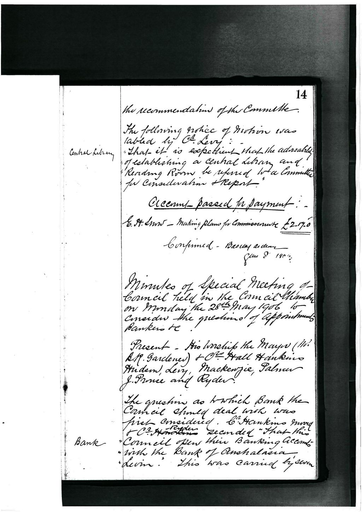 14
the recommendation of the Committee.
The following notice of Motion was
tabled by Cr. Levy: -
Central Library
"That it is expedient that the advisability
of establishing a Central Library and
Reading Room be referred to a Committee
for consideration & Report"
Account passed for payment: -
E. H. Snow - Making plans for Commissioners £2.17.0
Confirmed -
June 8
Minutes of Special Meeting of
Council held in the Council Chamber
on Monday the 28th May 1906 to
consider the questions of Appointment
Bankers &c.
Present - His Worship the Mayor (Mr
B.R. Gardener) & Crs Hall Hankins
Hudson, Levy, Mackenzie, Palmer
J. Prouse and Ryder.
The question as to which Bank the
Council should deal with was
first considered. Cr Hankins moved
& Cr. seconded "That this
Bank
Council open their Banking Account
with the Bank of Australasia
Levin." This was carried by